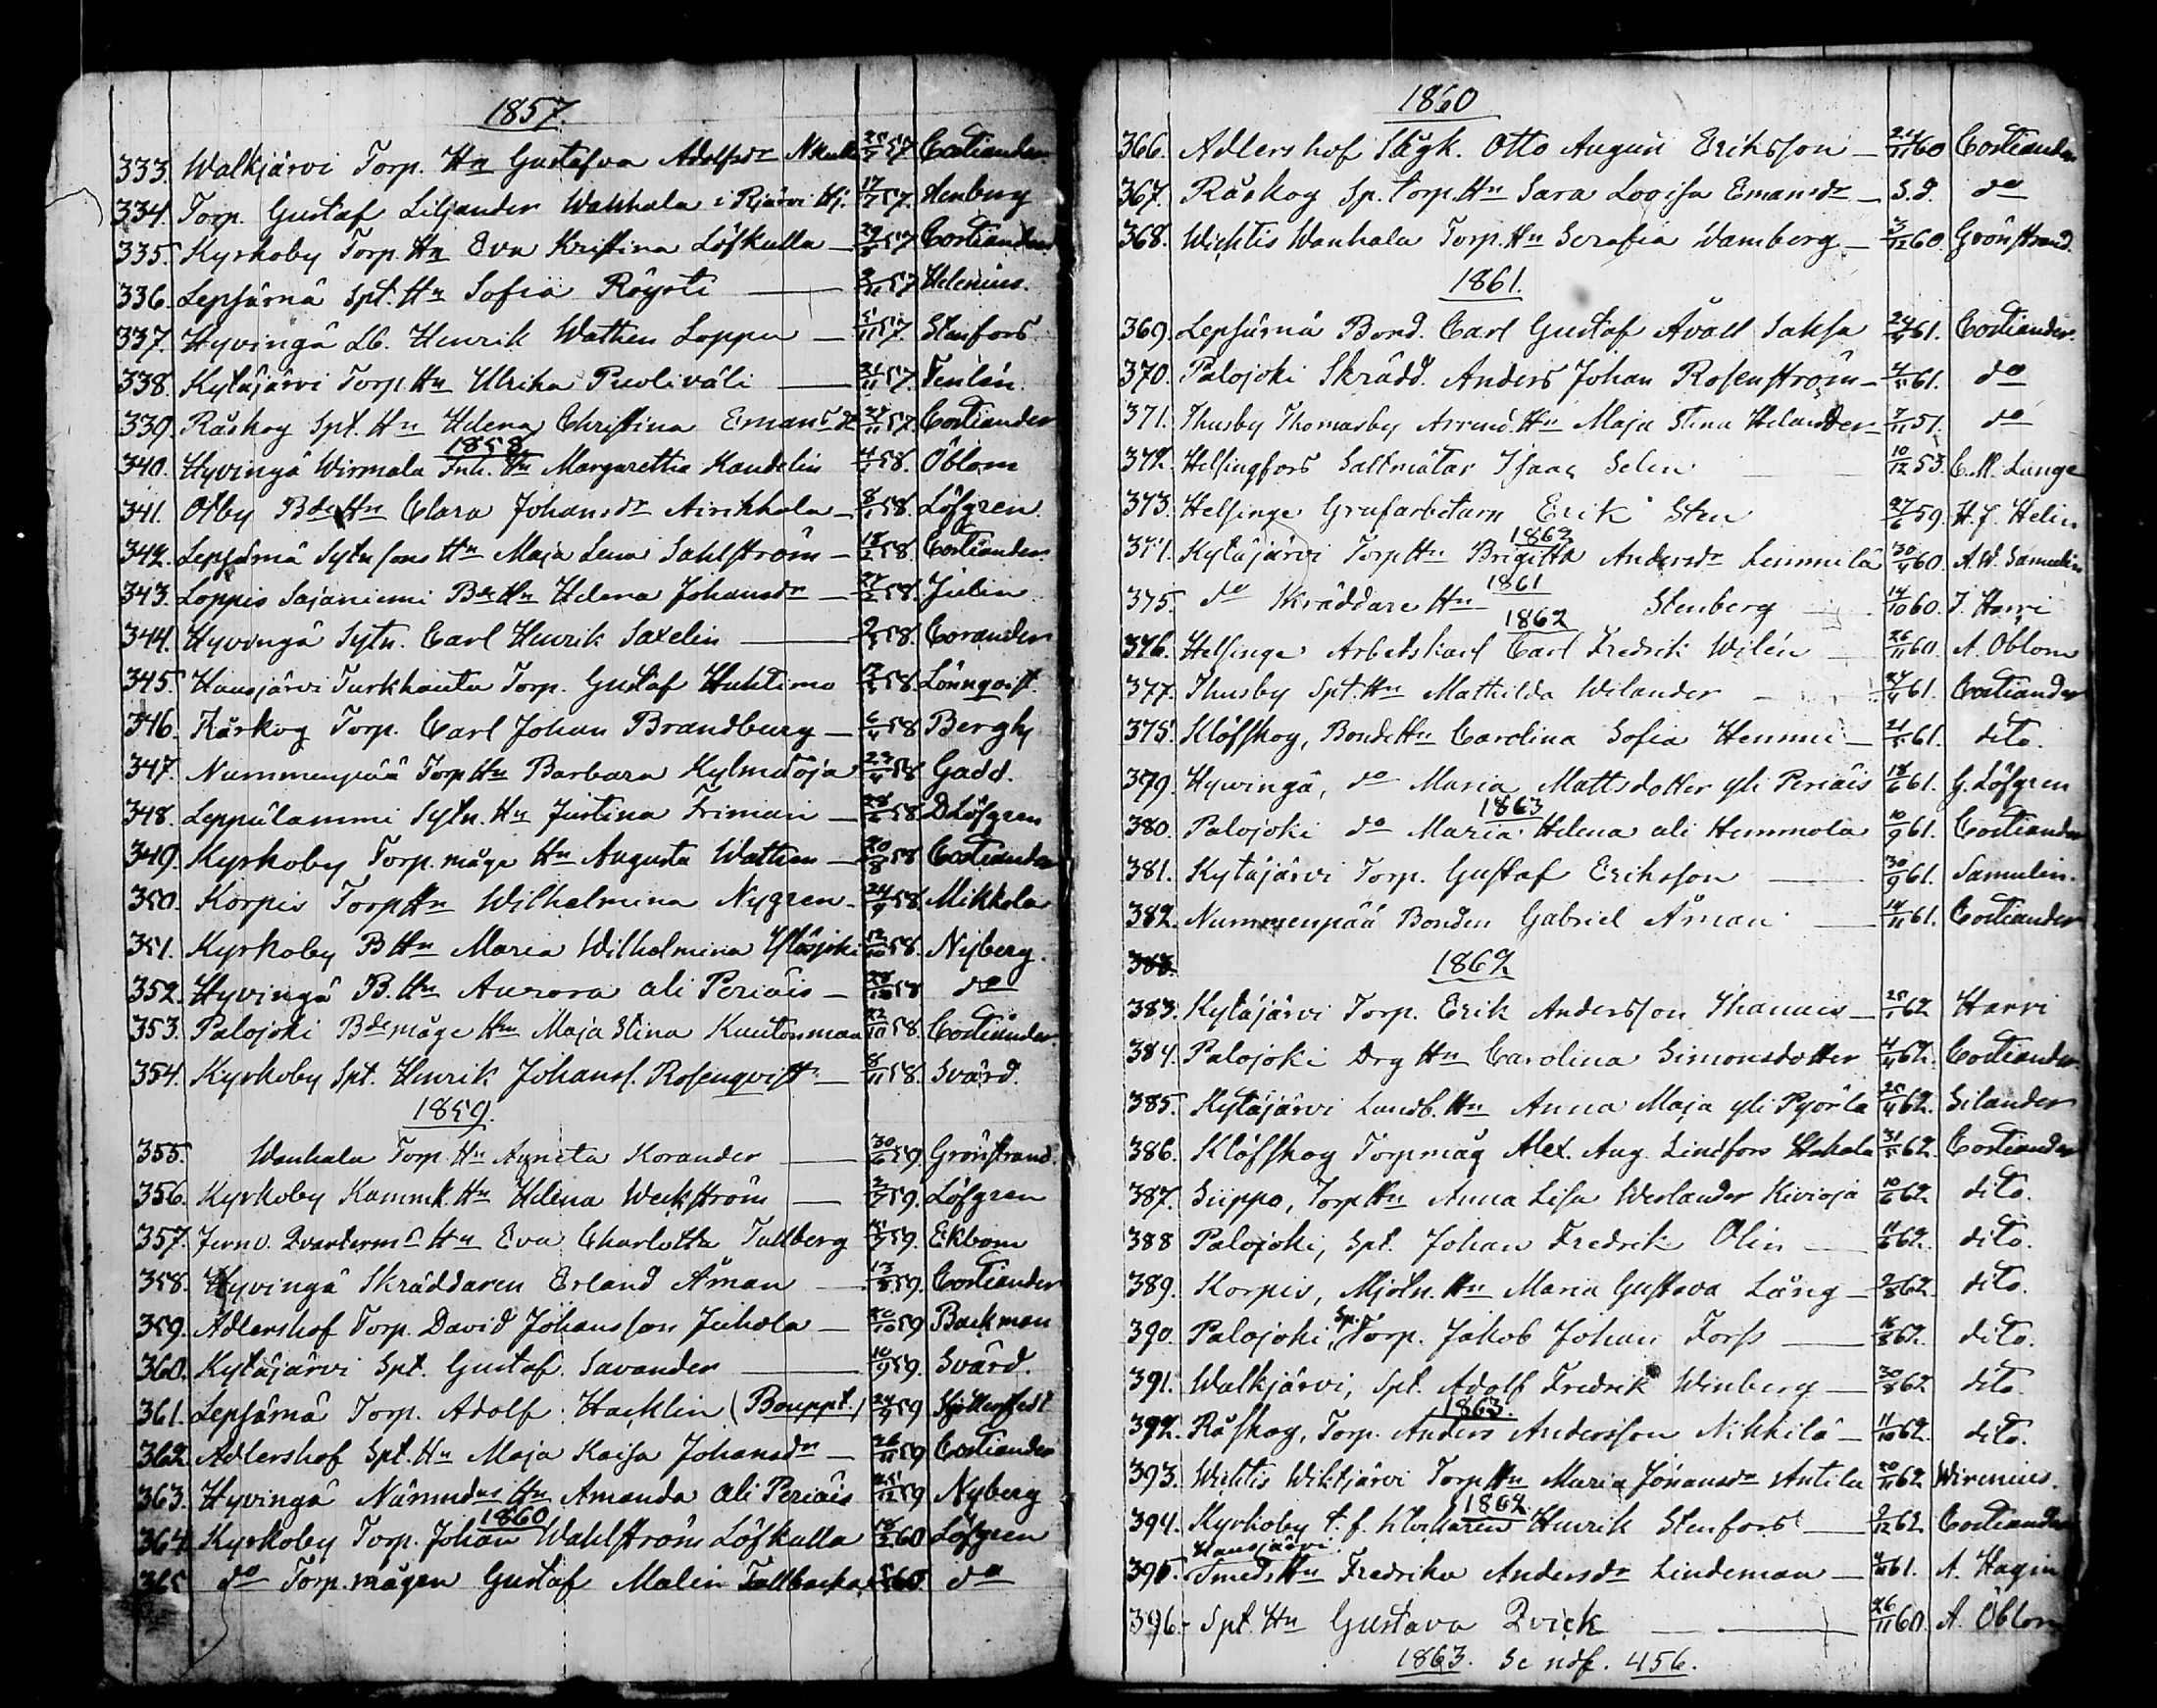 1857.
333. Walkjärvi Torp. Hu Gustafva Adolfsdr Nkulla 25/7 57 Costiander
334. Torp. Gustaf Liljander Wanhala i Rjärvi Hj. 17/7 57. Stenberg
335. Kyrkoby Torp. Hu Eva Kristina Löfkulla — 29/8 57 Costiander
336. Lepsämä Spt. Hu Sofia Röysti — 3/11 57 Helenius.
337. Hyvingä Lb. Henrik Wathen Loppu — 5/11 57. Stenfors
338. Kytäjärvi Torp. Hu Ulrika Puoliväli — 21/11 57. Tenlén.
339. Råskog Spt. Hu Helena Christina Emansdr 28/11 57. Costiander
1858.
340. Hyvingä Wirmala Inh. Hu Margaretha Kandelin 4/1 58. Öblom
341. Otby Bde Hu Clara Johansdr Airikkala — 8/1 58. Löfgren
342. Lepsämä Sytn sons Hu Maja Lena Sahlström — 18/2 58. Costiander.
343. Loppis Sajaniemi Bde Hu Helena Johansdr — 27/2 58. Julin
344. Hyvingä Sytn. Carl Henrik Saxelin — 2/3 58. Corander
345. Hausjärvi Turkhauta Torp. Gustaf Huhtimo 17/3 58. Lönnqvist.
346. Råskog Torp. Carl Johan Brandburg — 6/4 58 Bergh
347. Nummenpää Torp Hu Barbara Kylmäoja 23/4 58 Gadd.
348. Leppälammi Sytn. Hu Justina Friman — 28/5 58 D Löfgren
349. Kyrkoby Torp. måge Hu Augusta Wathen — 20/8 58 Costiander
350. Korpis Torp Hu Wilhelmina Nygren — 24/9 58. Mikkola
351. Kyrkoby B Hu Maria Wilhelmina Yläsjoki 12/10 58. Nyberg.
352. Hyvingä B. Hu Aurora ali Periäis — 28/10 58 do
353. Palojoki Bde måge Hu Maja Stina Kantonmaa 22/10 58. Costiander.
354. Kyrkoby Spt. Henrik Johanss. Rosenqvist — 8/11 58. Svärd.
1859.
355. Wanhala Torp. Hu Agneta Korander — 30/6 59. Grönstrand.
356. Kyrkoby Kammk. Hu Helena Weckström — 2/7 59. Löfgren
357. Jernv. Qvarterms Hu Eva Charlotta Tallberg 15/7 59. Ekbom
358. Hyvingä Skräddaren Erland Åman — 13/8 59. Costiander
359. Adlershof Torp. David Johansson Juhola — 20/10 59 Backman
360. Kytäjärvi Spt. Gustaf Savander — 10/9 59. Svärd.
361. Lepsämä Torp. Adolf Hacklin (Bouppt.) 24/9 59
362. Adlershof Spt. Hu Maja Kaisa Johansdr — 26/11 59 Costiander
363. Hyvingä Nämndms Hu Amanda Ali Periäis 25/12 59 Nyberg
1860
364. Kyrkoby Torp. Johan Wahlström Löfkulla 18/2 60 Löfgren
365 do Torp. mågen Gustaf Malin Tallbacka 5/5 60 do
1860
366. Adlershof Skgk. Otto August Eriksson — 24/11 60 Costiander
367. Råskog Sp. torp. Hu Sara Lovisa Emansdr — S.d. do
368. Wichtis Wanhala Torp. Hu Serafia Wamberg — 3/12 60. Grönstrand.
1861.
369. Lepsämä Bond. Carl Gustaf Åvall Saksa 24/4 61. Costiander.
370. Palojoki Skrädd. Anders Johan Rosenström — 4/5 61. do
371. Thusby Thomasby Arrend. Hu Maja Stina Helander — 7/11 51. do
372. Helsingfors Saltmätar Isaac Selin 10/12 53. C. M. Lunge
373. Helsinge Grufarbetarn Erik Sten 27/6 59. H. J. Helin
1862
374. Kytäjärvi Torp Hu Brigitta Andersdr Lemmilä 30/4 60. A. W. Samulin
1861
375. do Skräddare Hu Stenberg 14/10 60. J. Harvi
1862
376. Helsinge Arbetskarl Carl Fredrik Wilén — 26/11 60. A. Öblom
377. Thusby Spt. Hu Mathilda Welander — 27/4 61. Costiander
378. Klöfskog, Bonde Hu Carolina Sofia Hemmi — 21/5 61. dito.
379. Hyvingä, do Maria Mattsdotter yli Periäis 18/6 61. G. Löfgren
1863
380. Palojoki do Maria Helena ali Hemmola 10/9 61. Costiander
381. Kytäjärvi Torp. Gustaf Eriksson — 30/9 61. Samulin.
382. Nummenpää Bonden Gabriel Åman — 14/11 61. Costiander
383.
1862
383. Kytäjärvi Torp. Erik Andersson Ihamies — 25/1 62 Harvi
384. Palojoki Drg Hu Carolina Simonsdotter 4/4 62. Costiander.
385. Kytäjärvi Landb. Hu Anna Maja yli Pyörlä 25/4 62. Silander
386. Klöfskog Torpmåg Alex. Aug. Lindfors Hakala 31/5 62. Costiander
387. Siippo, Torp Hu Anna Lisa Werlander Kivioja 10/6 62. dito.
388 Palojoki, Spt. Johan Fredrik Olin — 11/6 62. dito.
389. Korpis, Mjöln. Hu Maria Gustava Lång — 2/8 62. dito.
390. Palojoki, Sp. Torp. Jakob Johan Forss — 16/8 62. dito.
391. Walkjärvi, Spt. Adolf Fredrik Winberg — 30/8 62 dito
1863.
392. Råskog, Torp. Anders Andersson Nikkilä — 11/10 62. dito.
393. Wichtis Wiktjärvi Torp Hu Maria Johansdr Antila 20/11 62 Wirenius.
1862.
394. Kyrkoby t. f. klockaren Henrik Stenfors — 9/12 62 Costiander
Hausjärvi
395. Smeds Hu Fredrika Andersdr Lindeman — 61. A. Hagin
396. Spt. Hu Gustava Qvick — 26/11 60. A. Öblom
1863. Se ndf. 456.